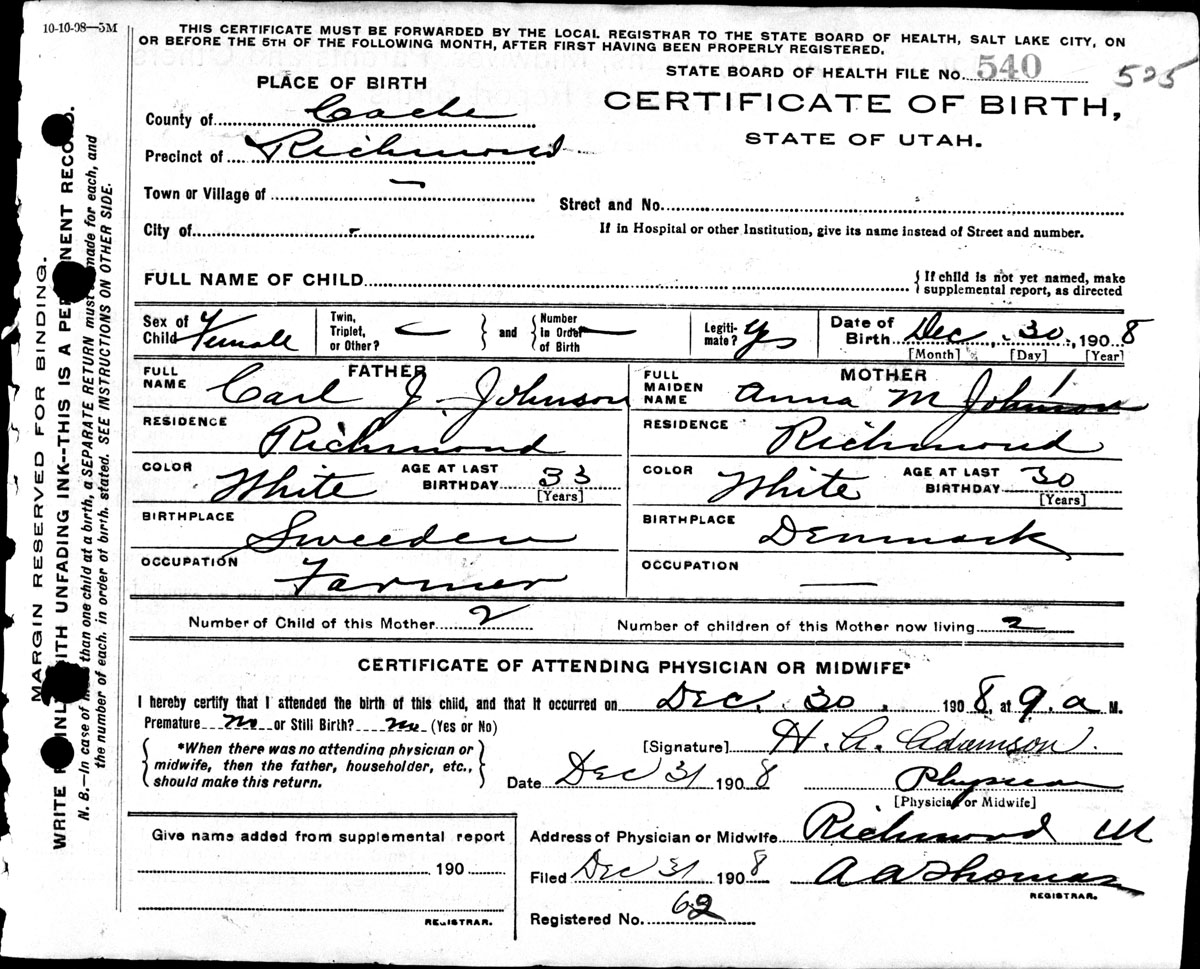 10-10-08—5M
THIS CERTIFICATE MUST BE FORWARDED BY THE LOCAL REGISTRAR TO THE STATE BOARD OF HEALTH, SALT LAKE CITY, ON
OR BEFORE THE 5TH OF THE FOLLOWING MONTH, AFTER FIRST HAVING BEEN PROPERLY REGISTERED.
STATE BOARD OF HEALTH FILE No. 540 525
CERTIFICATE OF BIRTH,
STATE OF UTAH.
PLACE OF BIRTH
County of Cache
Precinct of Richmond
Town or Village of —
City of -
Street and No.
If in Hospital or other Institution, give its name instead of Street and number.
FULL NAME OF CHILD
{ If child is not yet named, make
supplemental report, as directed
Sex of Child Female
Twin, Triplet, or Other? —
and
Number in Order of Birth —
Legiti-mate? Ys
Date of Birth Dec. 30, 1908
[Month] [Day] [Year]
FATHER
FULL NAME Carl J. Johnson
RESIDENCE Richmond
COLOR White
AGE AT LAST BIRTHDAY 33
[Years]
BIRTHPLACE Sweeden
OCCUPATION Farmer
MOTHER
FULL MAIDEN NAME Anna M Johnson
RESIDENCE Richmond
COLOR White
AGE AT LAST BIRTHDAY 30
[Years]
BIRTHPLACE Denmark
OCCUPATION —
Number of Child of this Mother 2
Number of children of this Mother now living 2
CERTIFICATE OF ATTENDING PHYSICIAN OR MIDWIFE*
I hereby certify that I attended the birth of this child, and that it occurred on Dec. 30, 1908, at 9. a M.
Premature No or Still Birth? No (Yes or No)
{ *When there was no attending physician or
midwife, then the father, householder, etc.,
should make this return. }
[Signature] H. A. Adamson.
Date Dec 31 1908
Physician
[Physician or Midwife]
Give name added from supplemental report
190
REGISTRAR.
Address of Physician or Midwife Richmond Ut
Filed Dec 31 1908
A A Thomas
REGISTRAR.
Registered No. 62
MARGIN RESERVED FOR BINDING.
WRITE PLAINLY WITH UNFADING INK--THIS IS A PERMANENT RECORD.
N. B.—In case of more than one child at a birth, a SEPARATE RETURN must be made for each, and
the number of each, in order of birth, stated. SEE INSTRUCTIONS ON OTHER SIDE.